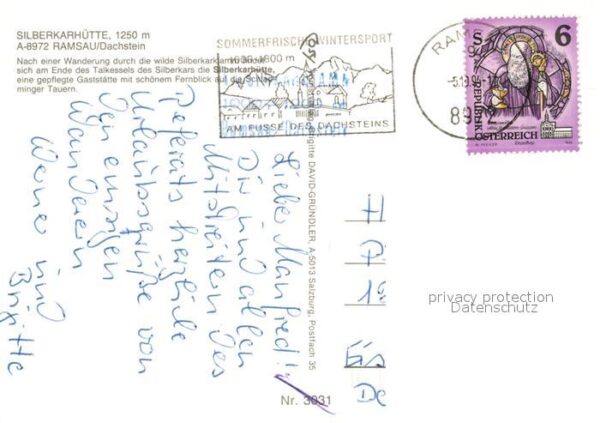 SILBERKARHÜTTE, 1250 m
A-8972 RAMSAU/Dachstein
Nach einer Wanderung durch die wilde Silberkarklamm findet
sich am Ende des Talkessels des Silberkars die Silberkarhütte,
eine gepflegte Gaststätte mit schönem Fernblick auf die Schlad-
minger Tauern.
SOMMERFRISCHE WINTERSPORT
1000-1600 m
AM FUSSE DES DACHSTEINS
RAM
5.10.9
89
S 6
REPUBLIK
ÖSTERREICH
Liebe Manfred!
Dir und allen
Mitstreitern des
Referats herzliche
Urlaubsgrüße von
den einzigen
Werner und
Brigitte
Brigitte DAVID-GRÜNDLER, A-5013 Salzburg, Postfach 35
H
P
Eis
De
privacy protection
Datenschutz
Nr. 3031